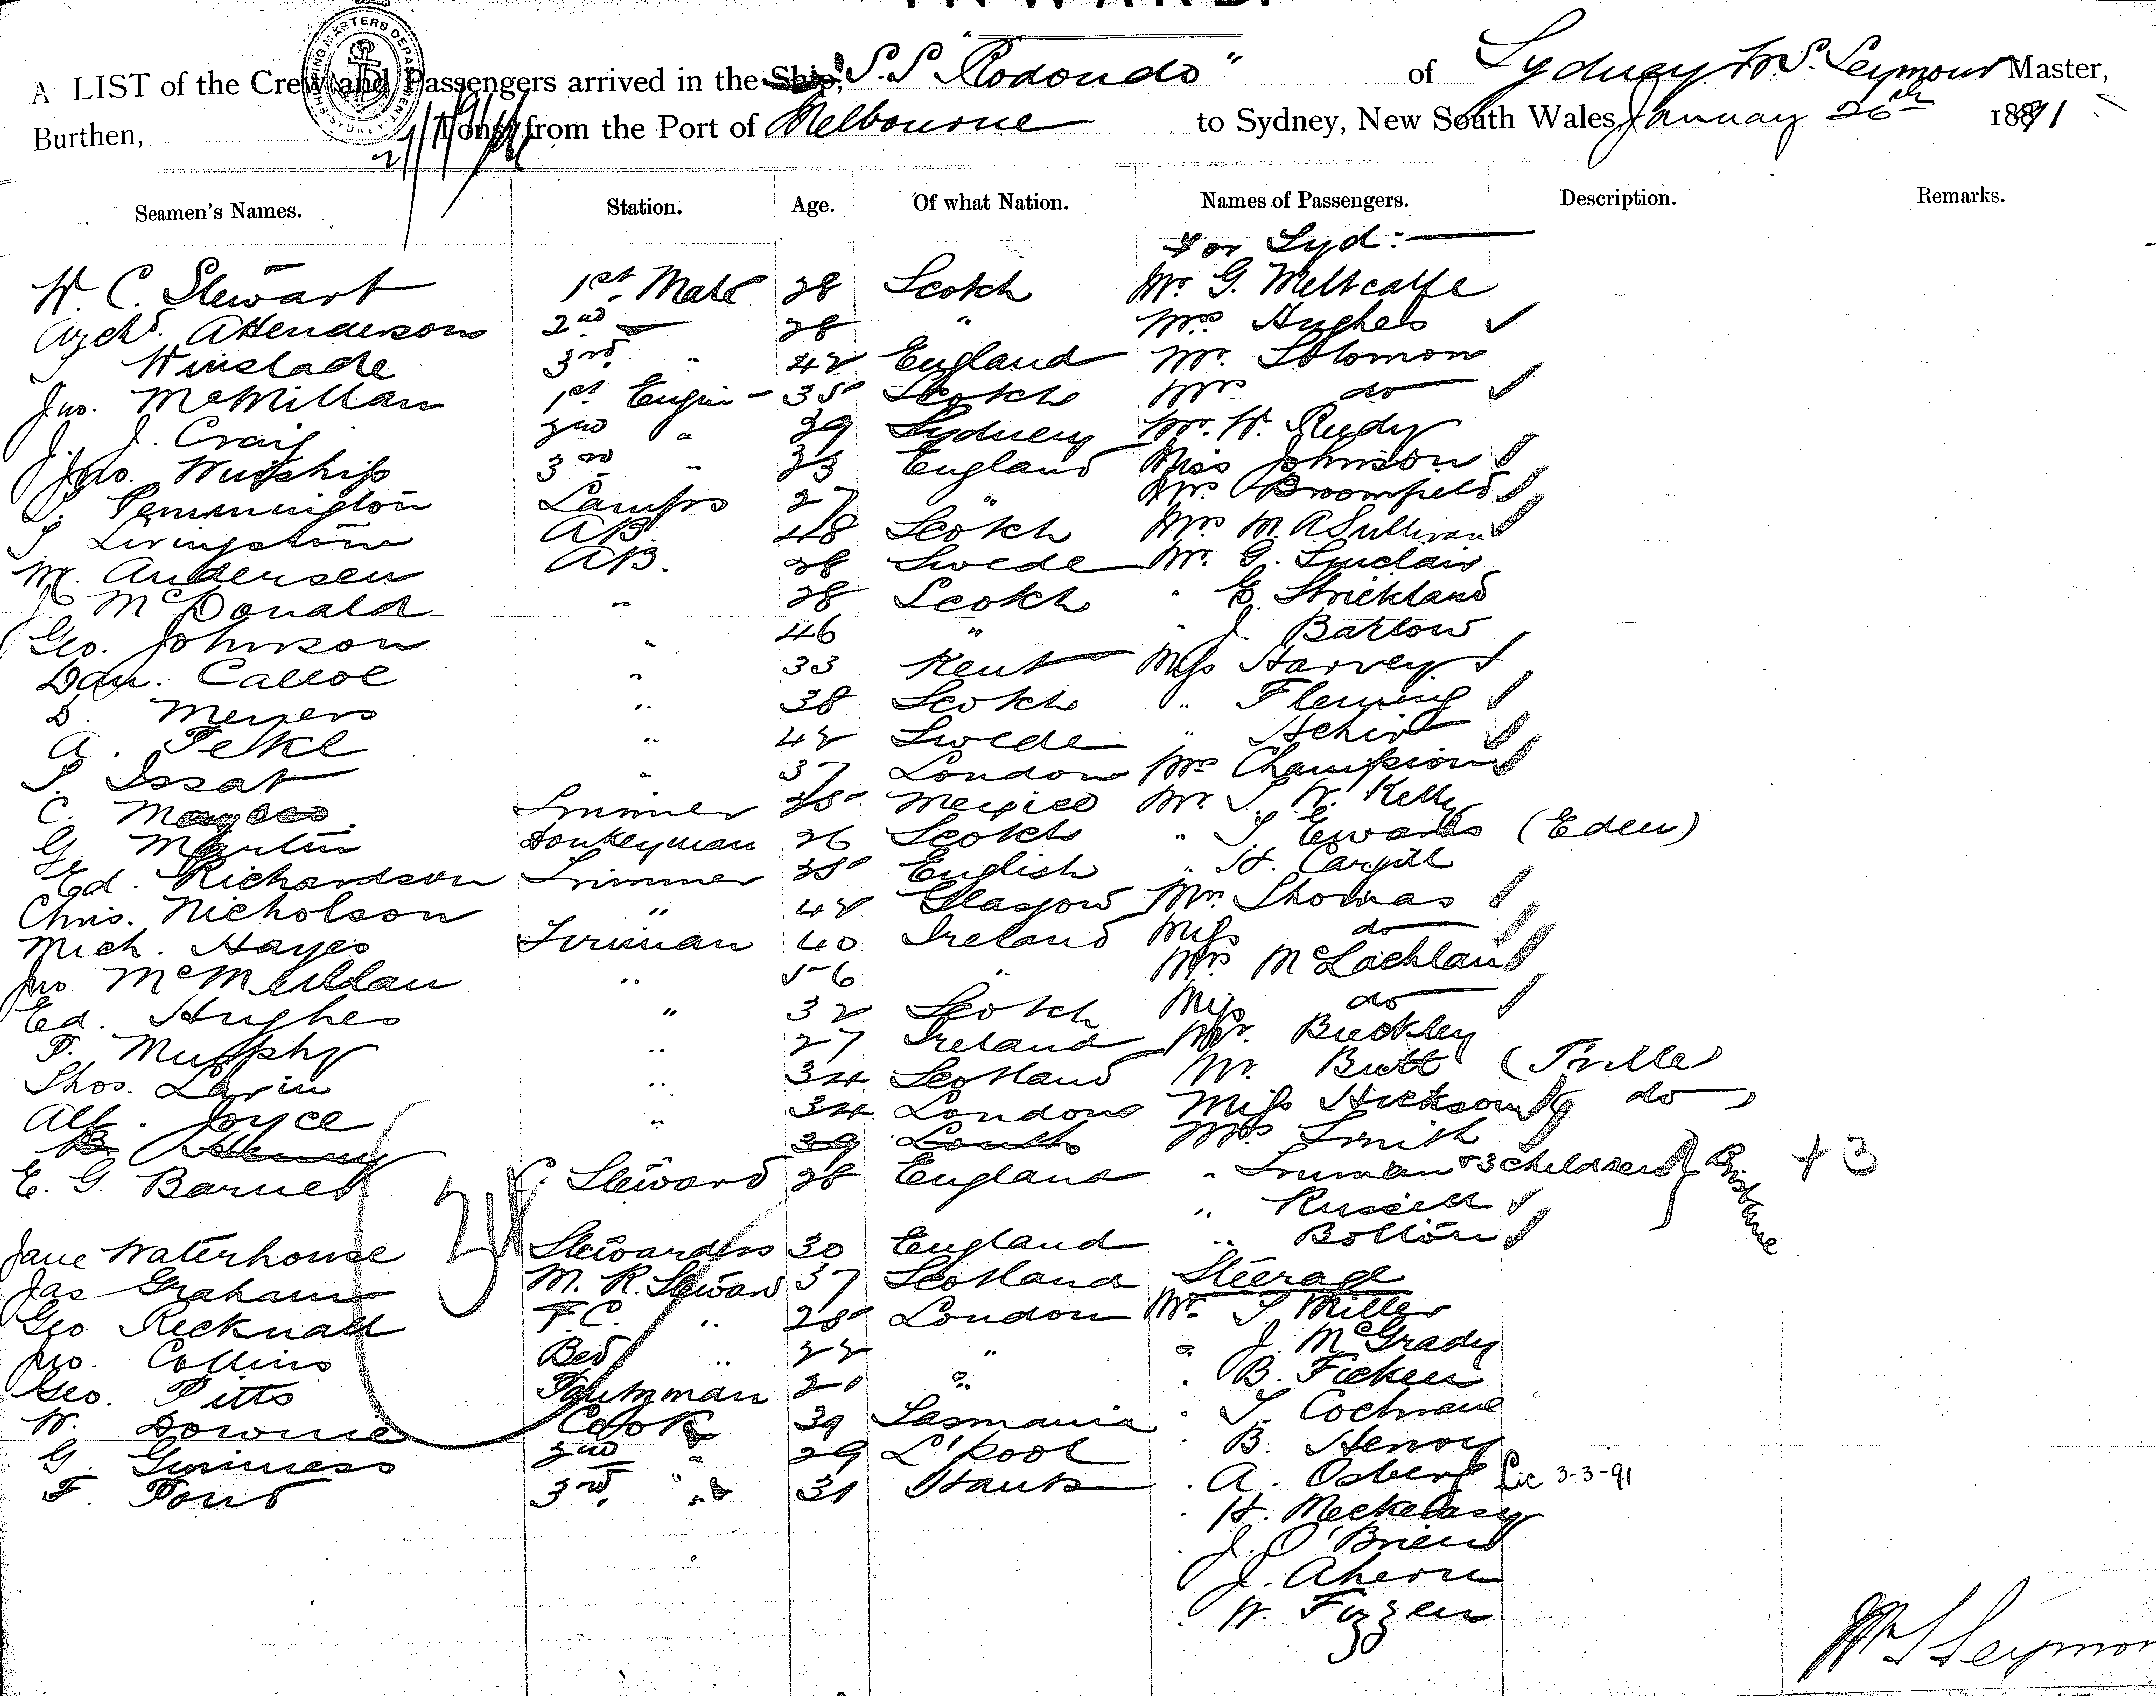 INWARD.
A LIST of the Crew and Passengers arrived in the Ship, S.S. "Rodondo" of Sydney W. S. Seymour Master,
Burthen, Tons from the Port of Melbourne to Sydney, New South Wales, January 26th 1891
Seamen's Names. Station. Age. Of what Nation. Names of Passengers. Description. Remarks.
For Syd: —
W. C. Stewart 1st Mate 28 Scotch Mr. G. Mettcalfe
Archd. A Henderson 2nd 28 " Mrs Hughes
Winslade 3rd " 42 England Mr. Solomon
Jno. McMillan 1st Engin- 35 Scotch Mrs do
J. J. Craig 2nd " 29 Sydney Mr. W. Rudy
Jno. 3rd " 23 England Miss Johnson
Pemmington Lamps 27 " Mrs Broomfield
Livingstone AB. 48 Scotch Mrs M. A Sullivan
M. Andersen AB. 28 Swede Mr. G. Sinclair
J McDonald " 28 Scotch " E. Strickland
Geo. Johnson " 46 " " J. Barlow
Dan. " 33 Kent Miss Harvey
D. Meyers " 38 Scotch " Fleming
A. " 42 Swede "
Issat " 37 London Mrs Champion
C. Trimmer 25 Mexico Mr. W. Kelly
G Martin Donkeyman 26 Scotch " Ewarts (Eden)
Ed. Richardson Trimmer 25 English " H. Cargill
Chris. Nicholson " 42 Glasgow Mrs Thomas
Mich. Hayes Fireman 40 Ireland Miss do
Jno McMillan " 56 " Mrs McLachlan
Ed. Hughes " 32 Scotch Miss do
P. Murphy " 27 Ireland Mr. Buckley
Thos. Lavin " 34 Scotland Mr. Butt (
Alf. Joyce " 34 London Miss Hickson do )
39 Mrs Smith
E. G. Barnes C. Steward 28 England " Truman & 3 children Brisbane +3
" Russell
Jane Waterhouse Stewardess 30 England " Bolton
Jas Graham M. R. Steward 37 Scotland Steerage
Geo Recknall F.C. " 25 London Mr. T Miller
Jno. Collins Bed " 22 " " J. McGrady
Geo. Pitts Pantryman 20 " " B. Ficken
W. Downie Cook 39 Tasmania " T. Cochrane
G. Guinness 2nd " 29 L'pool " B. Henry
F. Pond 3rd " 31 Hants " A. Osberg Lic 3-3-91
" H.
" J. O'Brien
J. Ahern
" W. Fizzen
34
30
W S Seymour